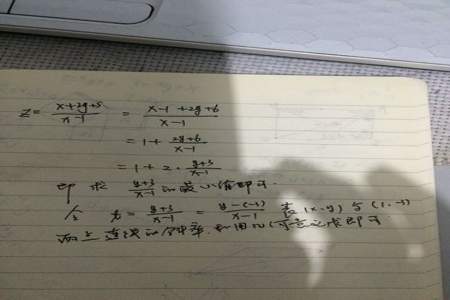 z = (x+2y+5)/(x-1) = (x-1+2y+6)/(x-1)
= 1 + (2y+6)/(x-1)
= 1 + 2·(y+3)/(x-1)
即求 (y+3)/(x-1) 的最小值即可.
令 = (y+3)/(x-1) = (y-(-3))/(x-1) 表 (x,y) 与 (1,-3)
两点连线的斜率 利用 即可